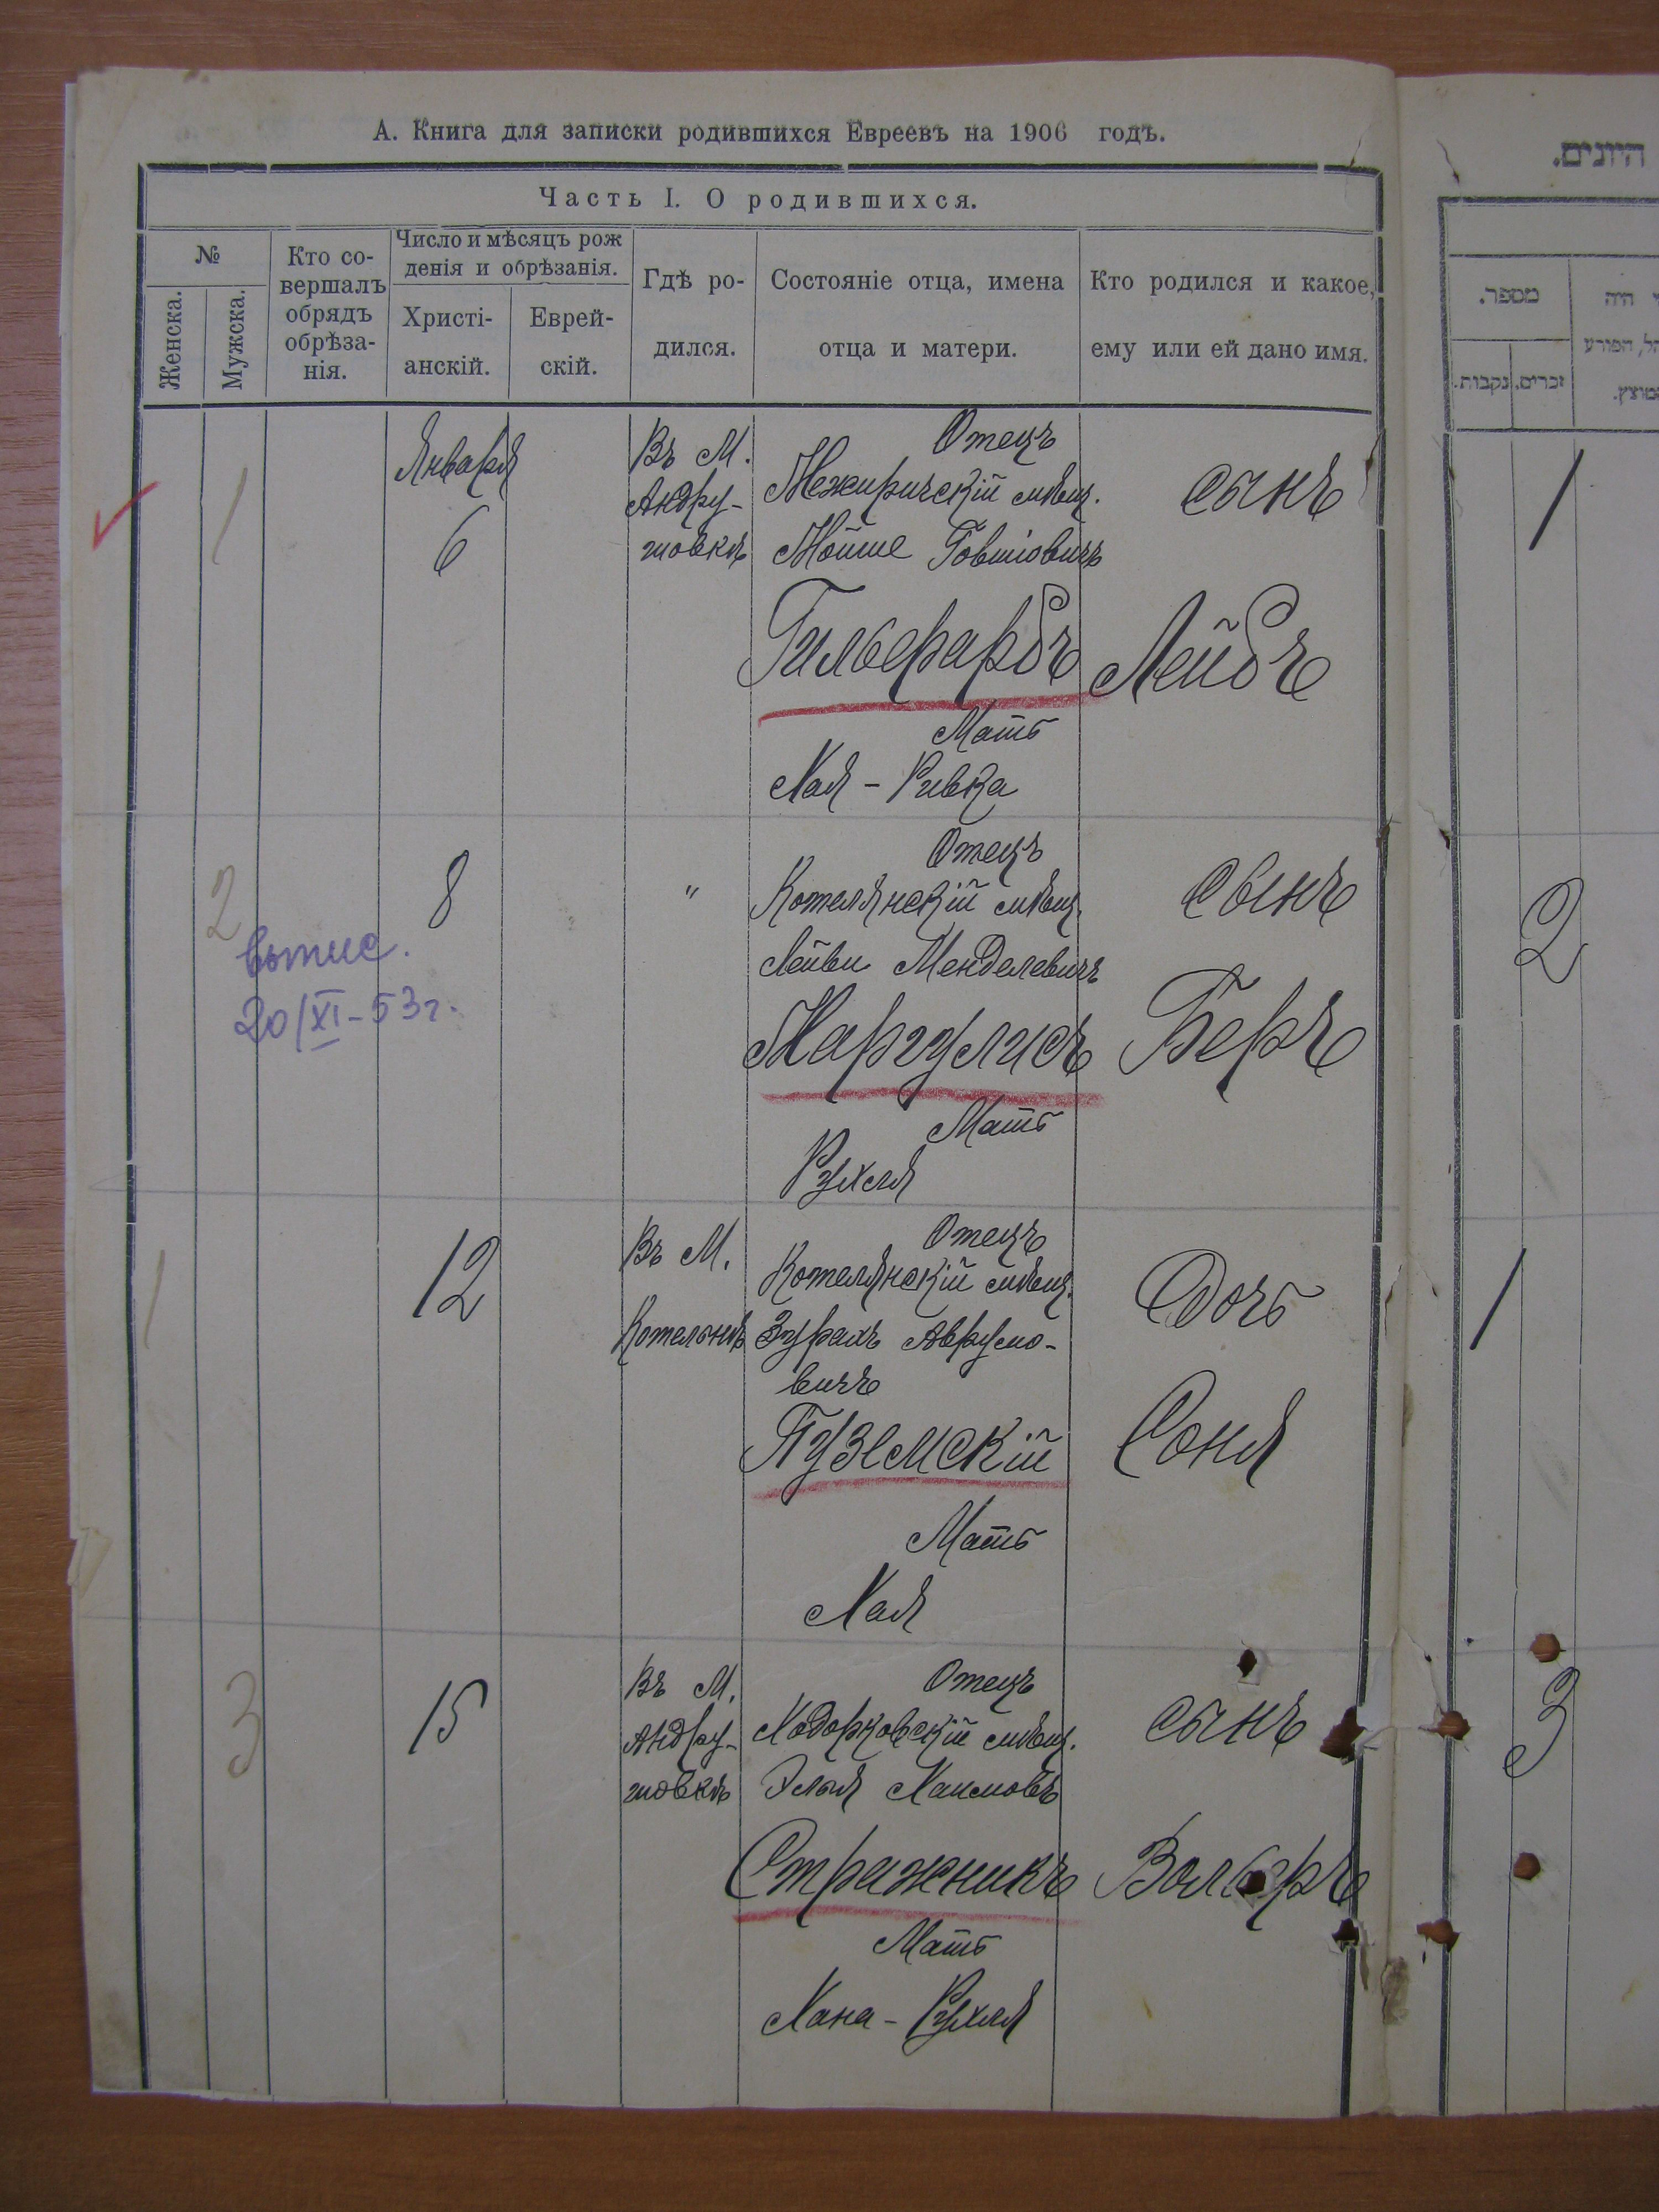 А. Книга для записки родившихся Евреевъ на 1906 годъ.
Часть I. О родившихся.
№
Женска.
Мужска.
Кто со-
вершалъ
обрядъ
обрѣза-
нія.
Число и мѣсяцъ рож
денія и обрѣзанія.
Христі-
анскій.
Еврей-
скій.
Гдѣ ро-
дился.
Состояніе отца, имена
отца и матери.
Кто родился и какое,
ему или ей дано имя.
1
Января
6
Въ М.
Андру-
шовкѣ
Отецъ
Межиричскій мѣщ.
Мойше Говшіовичъ
Гильфарбъ
Мать
Хая - Ривка
сынъ
Лейбъ
2
выпис.
20/XI-53г.
8
"
Отецъ
Котелянскій мѣщ.
Лейви Менделевичъ
Маргулисъ
Мать
Рухля
сынъ
Беръ
1
12
Въ М.
Котельнѣ
Отецъ
Котелянскій мѣщ.
Аврумо-
вичъ
Пуземскій
Мать
Хая
дочь
Соня
3
15
Въ М.
Андру-
шовкѣ
Отецъ
Ходорковскій мѣщ.
Элья Хаимовъ
Стражникъ
Мать
Хана - Рухля
сынъ
Вольфъ
היונים.
מספר.
זכרים.
נקבות.
היה
1
2
1
3